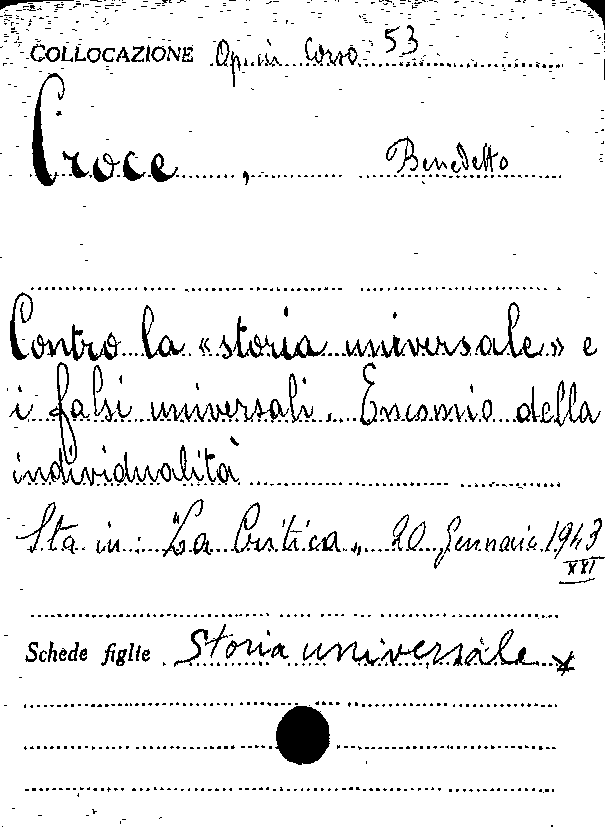 COLLOCAZIONE Op. in Corso 53
Croce, Benedetto
Contro la «storia universale» e
i falsi universali. Encomio della
individualità
Sta in: "La Critica" 20 Gennaio 1943
XXI
Schede figlie Storia universale